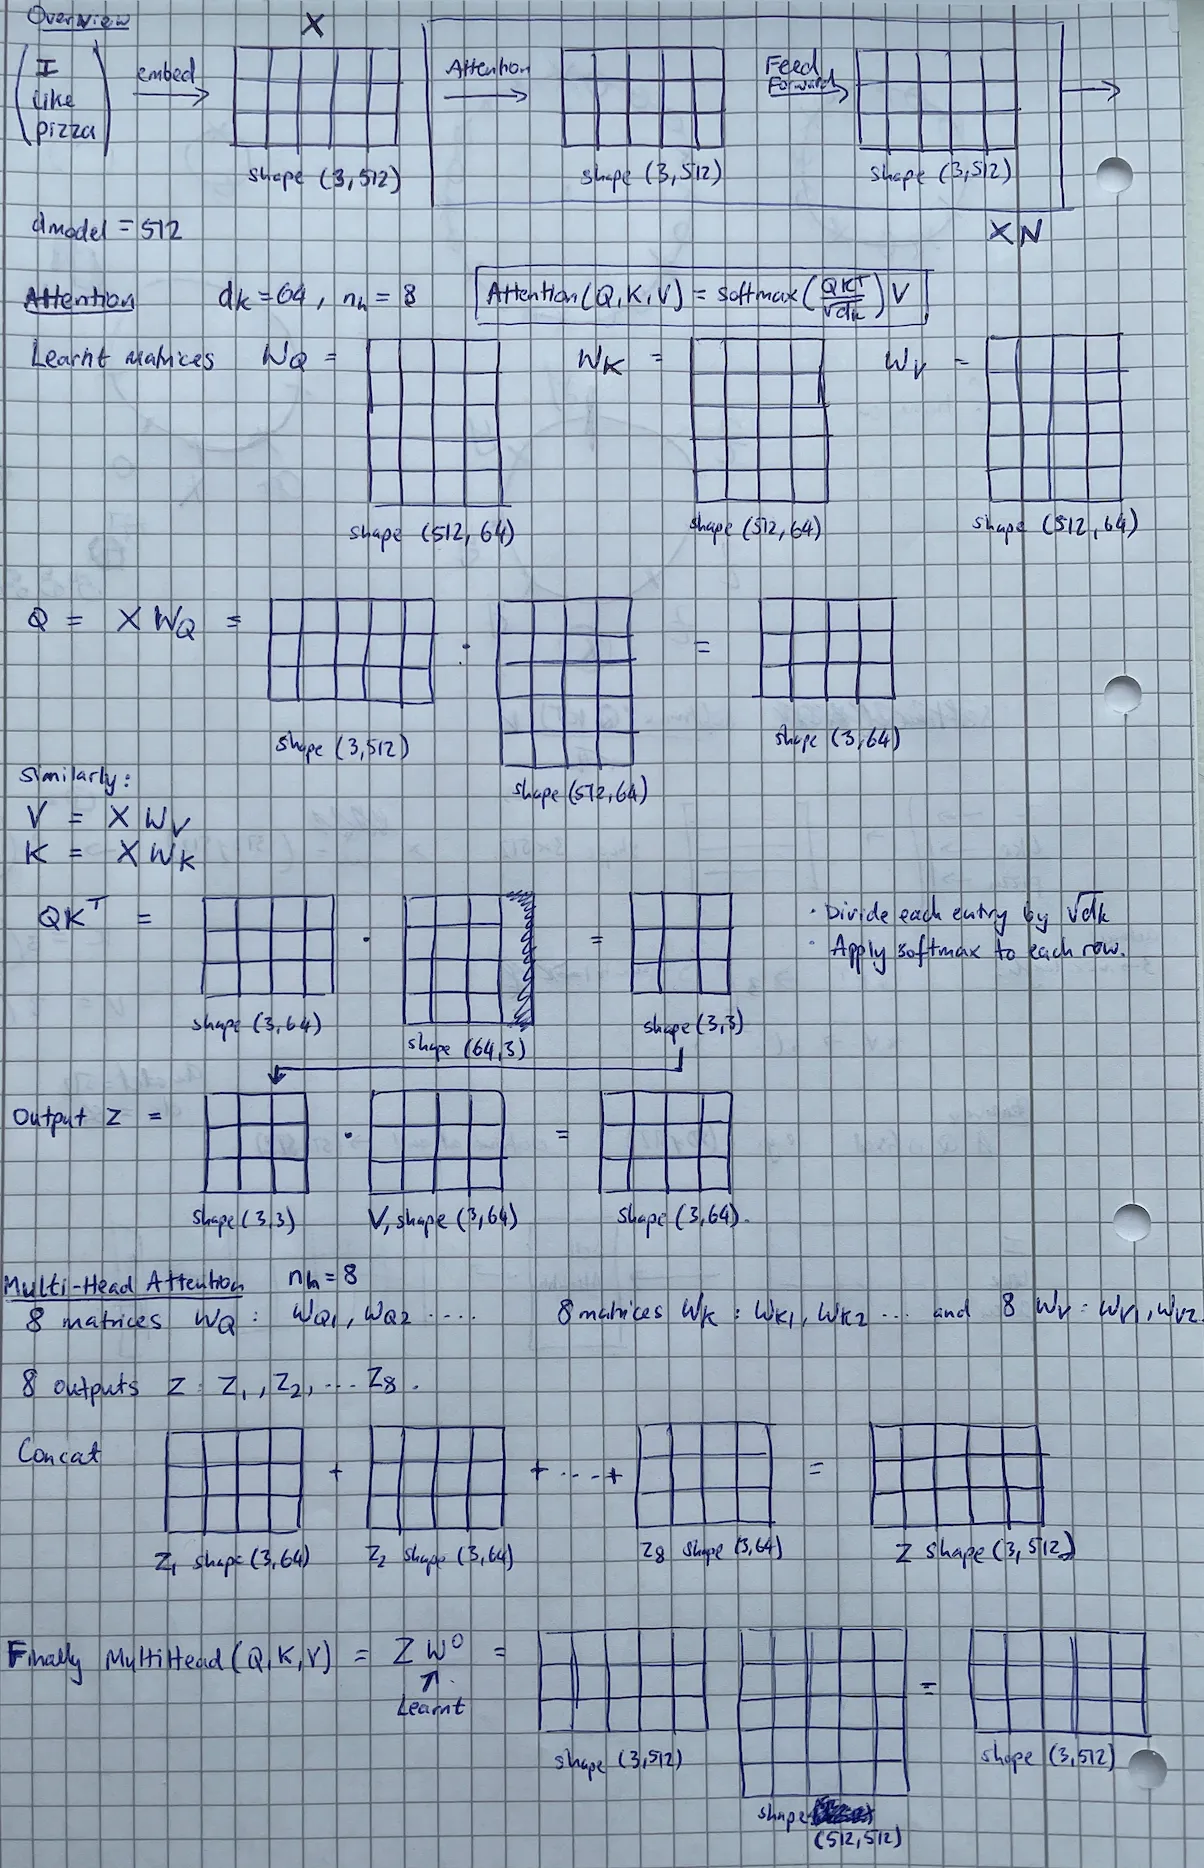 Overview
X
(I like pizza) embed → Attention → Feed Forward → →
shape (3,512) shape (3,512) shape (3,512)
dmodel = 512 X N
Attention dk = 64, nh = 8 Attention(Q,K,V) = softmax(QKT/√dk)V
Learnt matrices WQ = WK = WV =
shape (512, 64) shape (512, 64) shape (512, 64)
Q = X WQ = · =
shape (3,512) shape (512,64) shape (3,64)
Similarly:
V = X WV
K = X WK
QKT = · =
· Divide each entry by √dk
· Apply softmax to each row.
shape (3,64) shape (64,3) shape (3,3)
Output Z = · =
shape (3,3) V, shape (3,64) shape (3,64).
Multi-Head Attention nh = 8
8 matrices WQ : WQ1, WQ2 .... 8 matrices WK : WK1, WK2 ... and 8 WV : WV1, WV2.
8 outputs Z : Z1, Z2, ... Z8.
Concat + + ... + =
Z1 shape (3,64) Z2 shape (3,64) Z8 shape (3,64) Z shape (3,512)
Finally MultiHead(Q,K,V) = Z WO = =
↑
Learnt
shape (3,512) shape (512,512) shape (3,512)